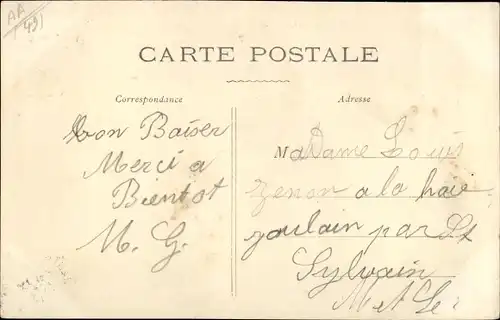 AA
(49)
CARTE POSTALE
Correspondance
Adresse
bon Baiser
Merci a
Bientot
M. G.
MaDame Louis
zenon a la haie
joulain par St
Sylvain
M et Le